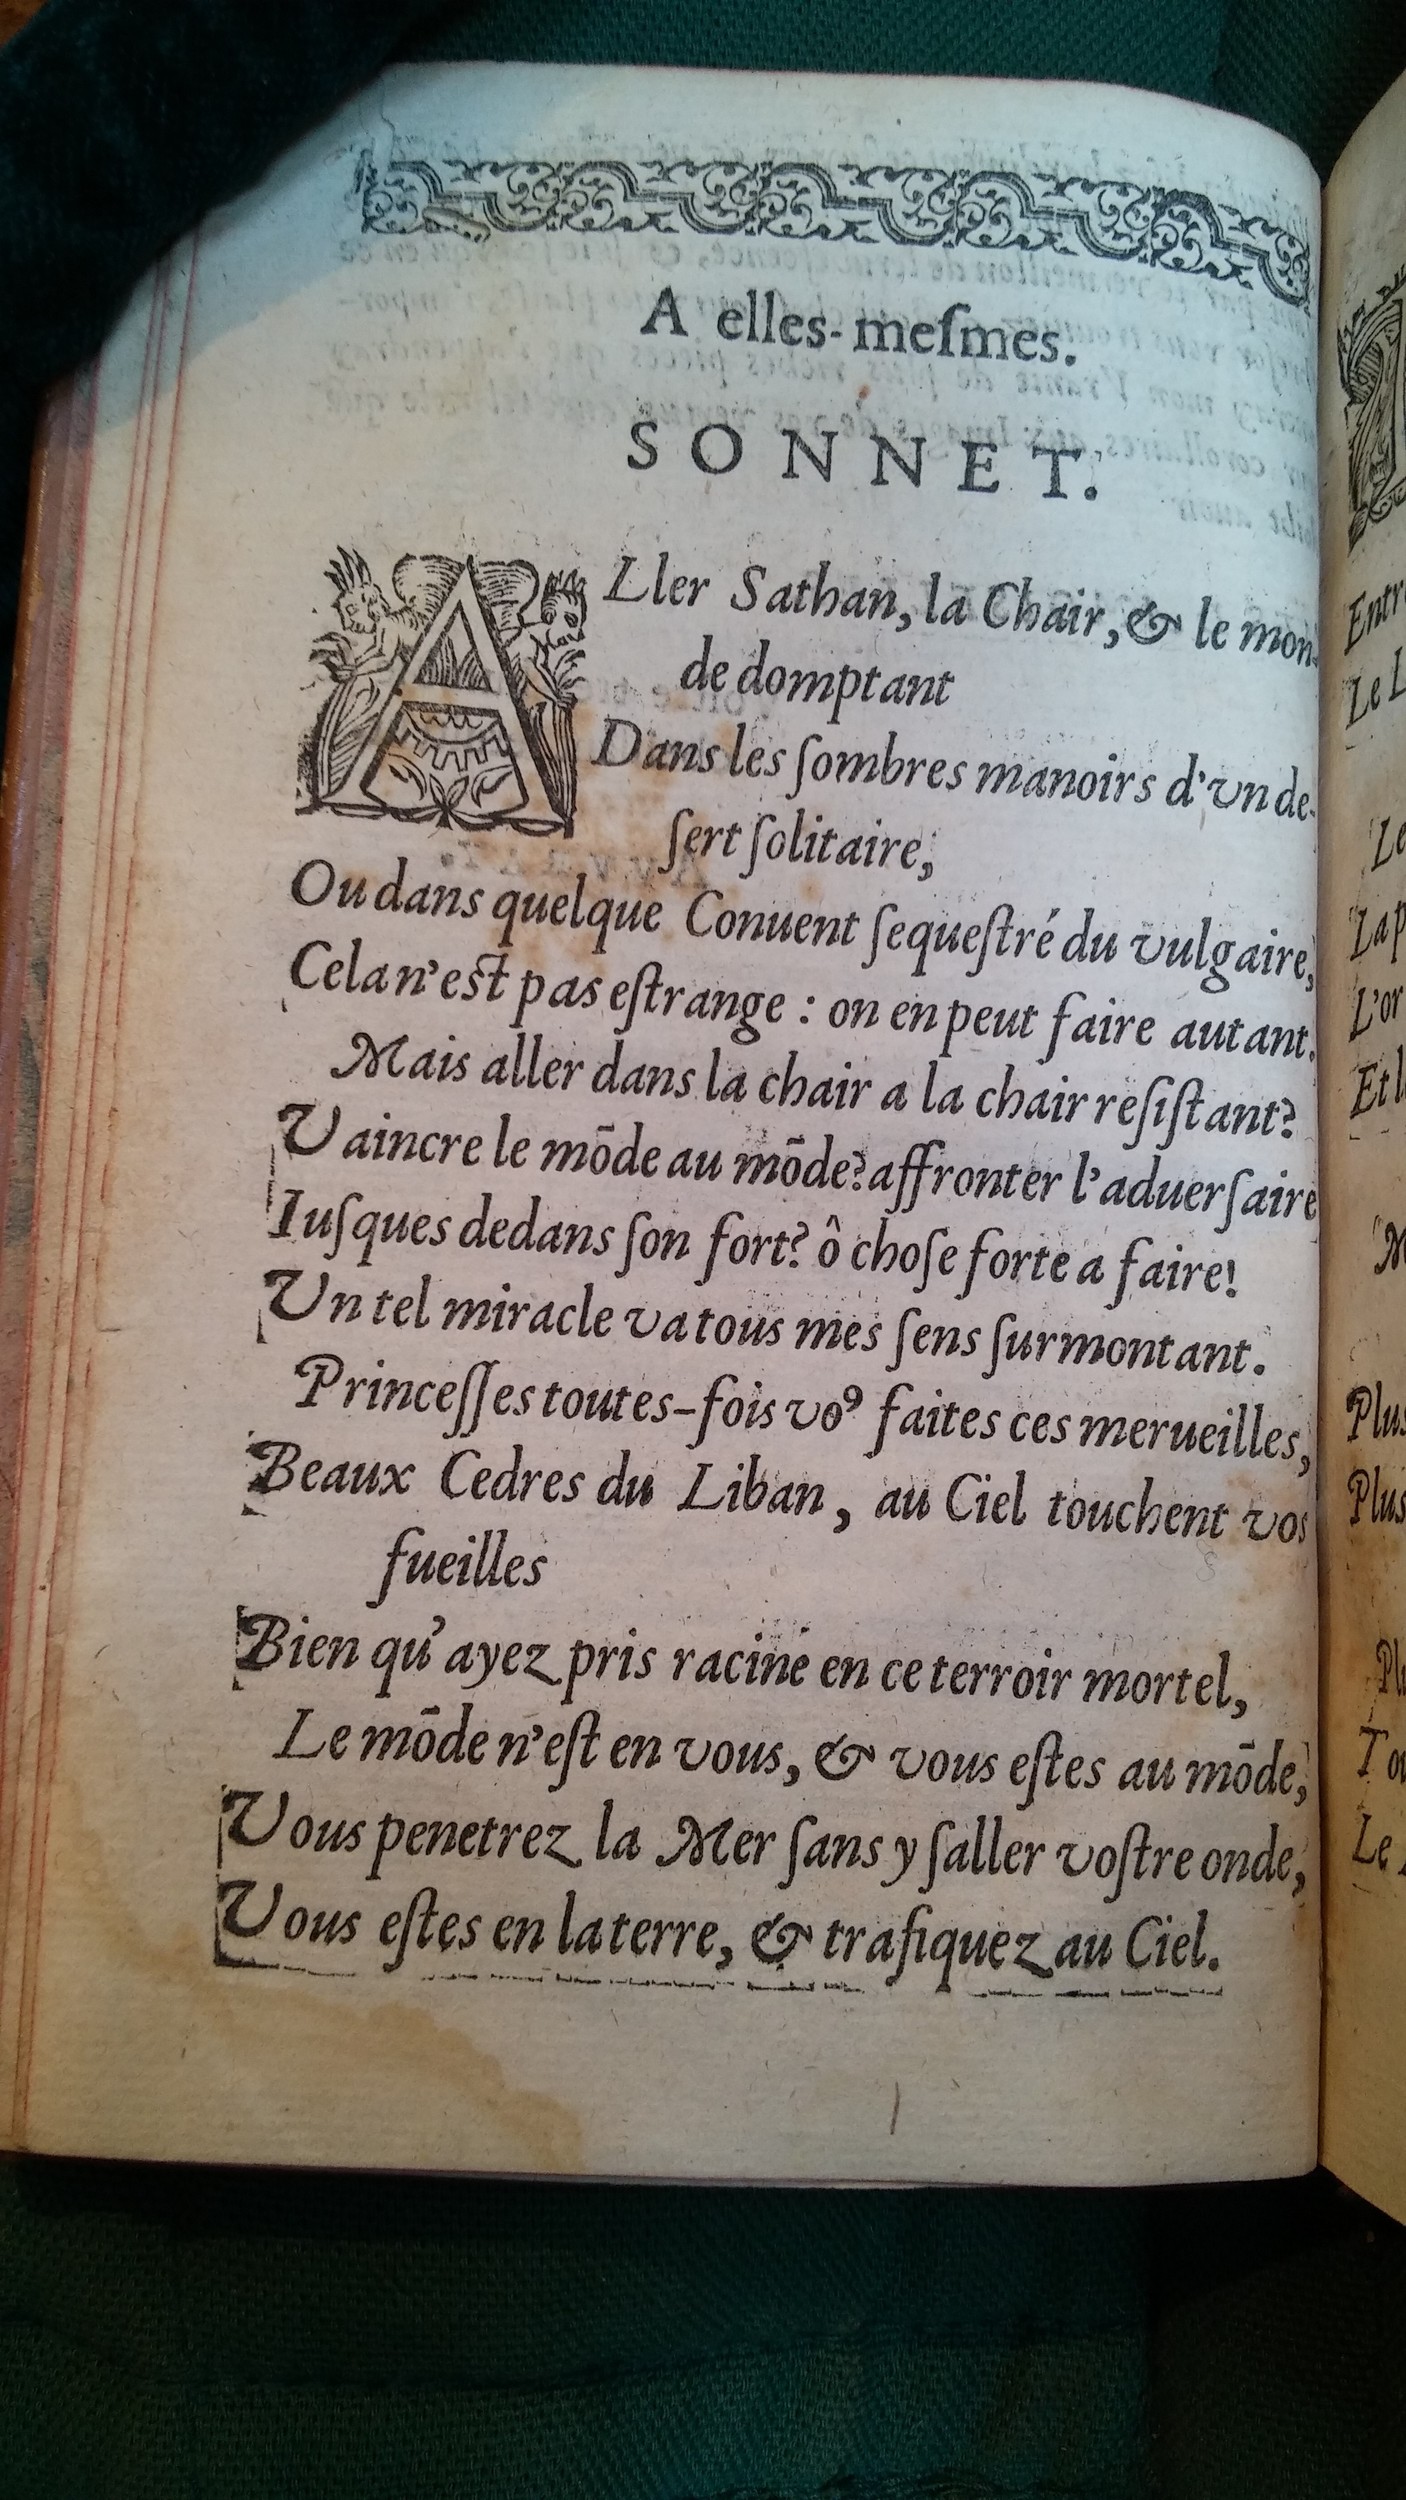 A elles-meſmes.
SONNET.
ALler Sathan, la Chair, & le mon-
de domptant
Dans les ſombres manoirs d'vn de-
ſert ſolitaire,
Ou dans quelque Conuent ſequeſtré du vulgaire,
Cela n'eſt pas eſtrange : on en peut faire autant.
Mais aller dans la chair a la chair reſiſtant?
Vaincre le mōde au mōde? affronter l'aduerſaire
Iuſques dedans ſon fort? ô choſe forte a faire!
Vn tel miracle va tous mes ſens ſurmontant.
Princeſſes toutes-fois voꝰ faites ces merueilles,
Beaux Cedres du Liban, au Ciel touchent vos
fueilles
Bien qu'ayez pris racine en ce terroir mortel,
Le mōde n'eſt en vous, & vous eſtes au mōde,
Vous penetrez la Mer ſans y ſaller voſtre onde,
Vous eſtes en la terre, & trafiquez au Ciel.
Entr
Le L
Le
La p
L'or
Et l
M
Plus
Plus
Pl
To
Le